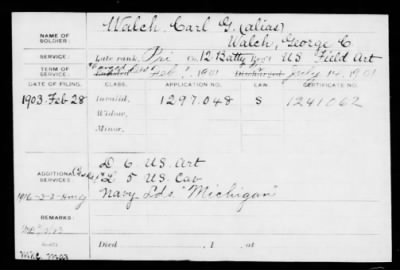 NAME OF SOLDIER: Walch, Carl G. (alias)
Walch, George C.
SERVICE: Late rank, Pri Co. 12 Batty Reg't US Field Art
TERM OF SERVICE: Enlisted Feb , 1901 Discharged July 14, 1901
DATE OF FILING. CLASS. APPLICATION NO. LAW. CERTIFICATE NO.
1903 Feb 28 Invalid, 1297.048 S 1241062
Widow,
Minor,
ADDITIONAL SERVICES: D 6 US. Art
L 5 US. Cav
Navy "Michigan"
REMARKS:
Died , 1 , at